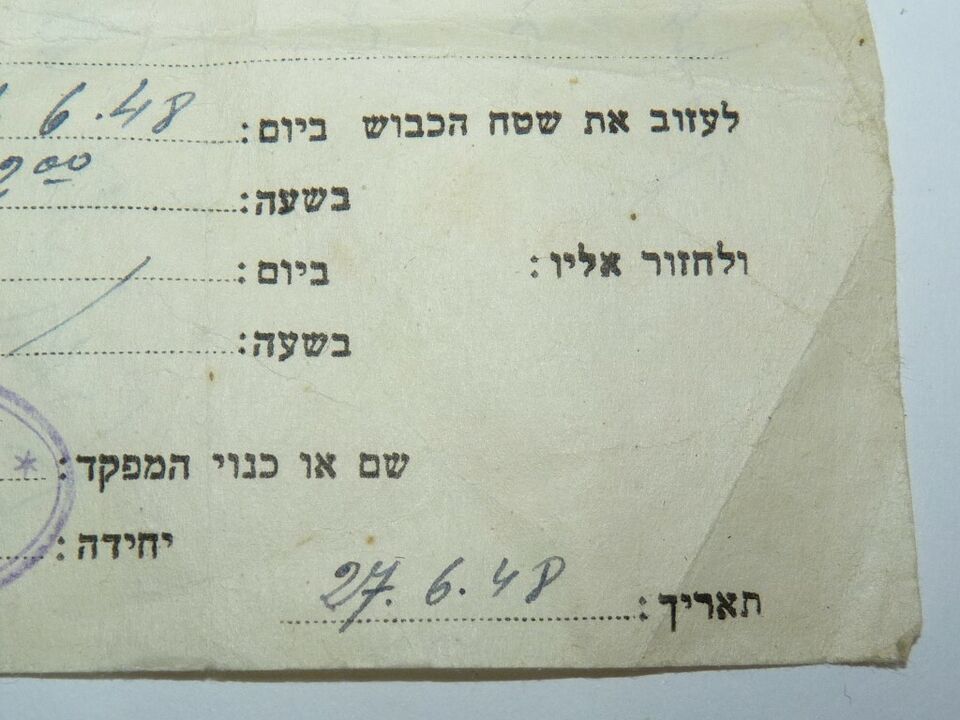 לעזוב את שטח הכבוש ביום: 6.48
בשעה: 2 00
ולחזור אליו: ביום:
בשעה:
שם או כנוי המפקד:
יחידה:
תאריך: 27.6.48